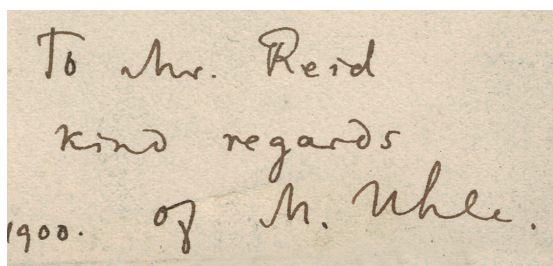 To Mr. Reid
kind regards
1900. of M. Uhle.